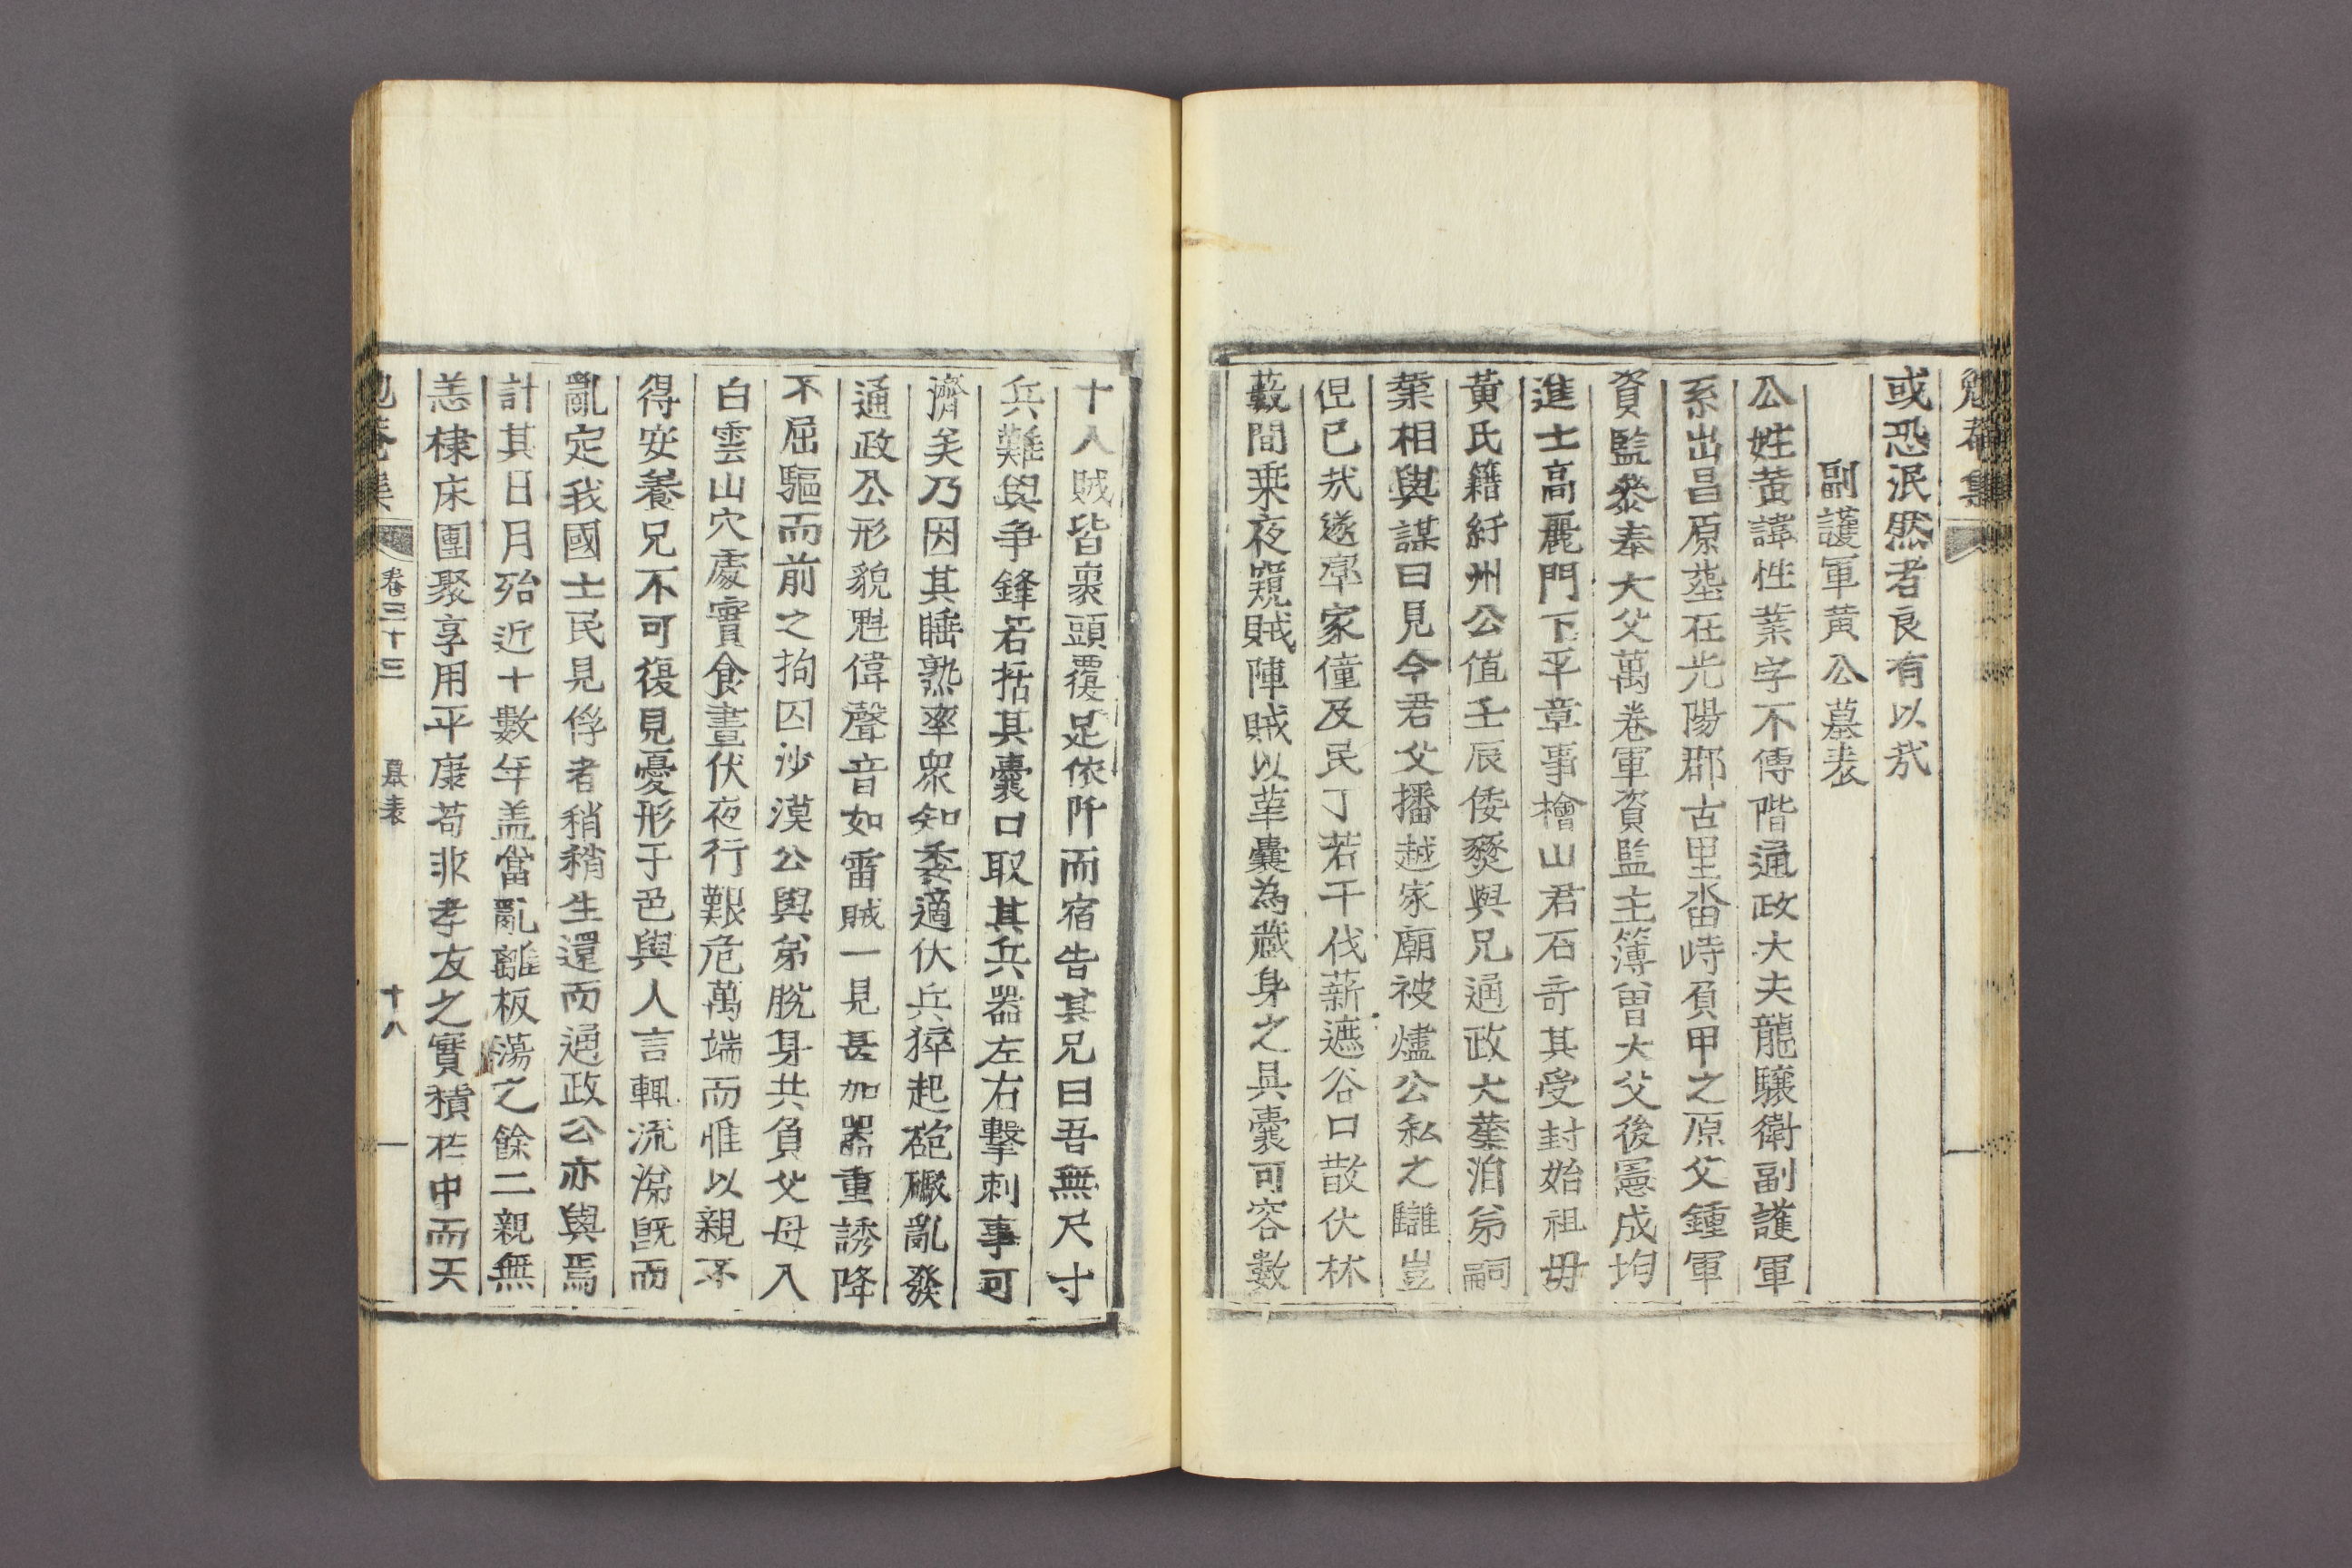 勉菴集
或恐泯然者良有以哉
副護軍黃公墓表
公姓黃諱性業字不傳階通政大夫龍驤衛副護軍
系出昌原塟在光陽郡古里畓峙負甲之原父鍾軍
資監叅奉大父萬卷軍資監主簿曾大父後憲成均
進士高麗門下平章事檜山君石奇其受封始祖毋
黃氏籍紆州公値壬辰倭燹與兄通政大葉洎弟嗣
葉相與謀曰見今君父播越家廟被燼公私之讎豈
但已㢤遂率家僮及民丁若干伐薪遮谷口散伏林
藪間乗夜覘賊陣賊以革囊為藏身之具囊可容數
十人賊皆裹頭覆足依阡而宿告其兄曰吾無尺寸
兵難與争鋒若括其囊口取其兵器左右擊刺事可
濟矣乃因其睡熟率衆知委適伏兵猝起砲礮亂發
通政公形貌魁偉聲音如雷賊一見甚加器重誘降
不屈驅而前之拘囚沙漠公與弟脫身共負父母入
白雲山穴處實食晝伏夜行艱危萬端而惟以親不
得安養兄不可復見憂形于色與人言輒流涕旣而
亂定我國士民見俘者稍稍生還而通政公亦與焉
計其日月殆近十數年盖當亂離板蕩之餘二親無
恙棣床團聚享用平康苟非孝友之實積在中而天
勉菴集 卷三十三 墓表 十八